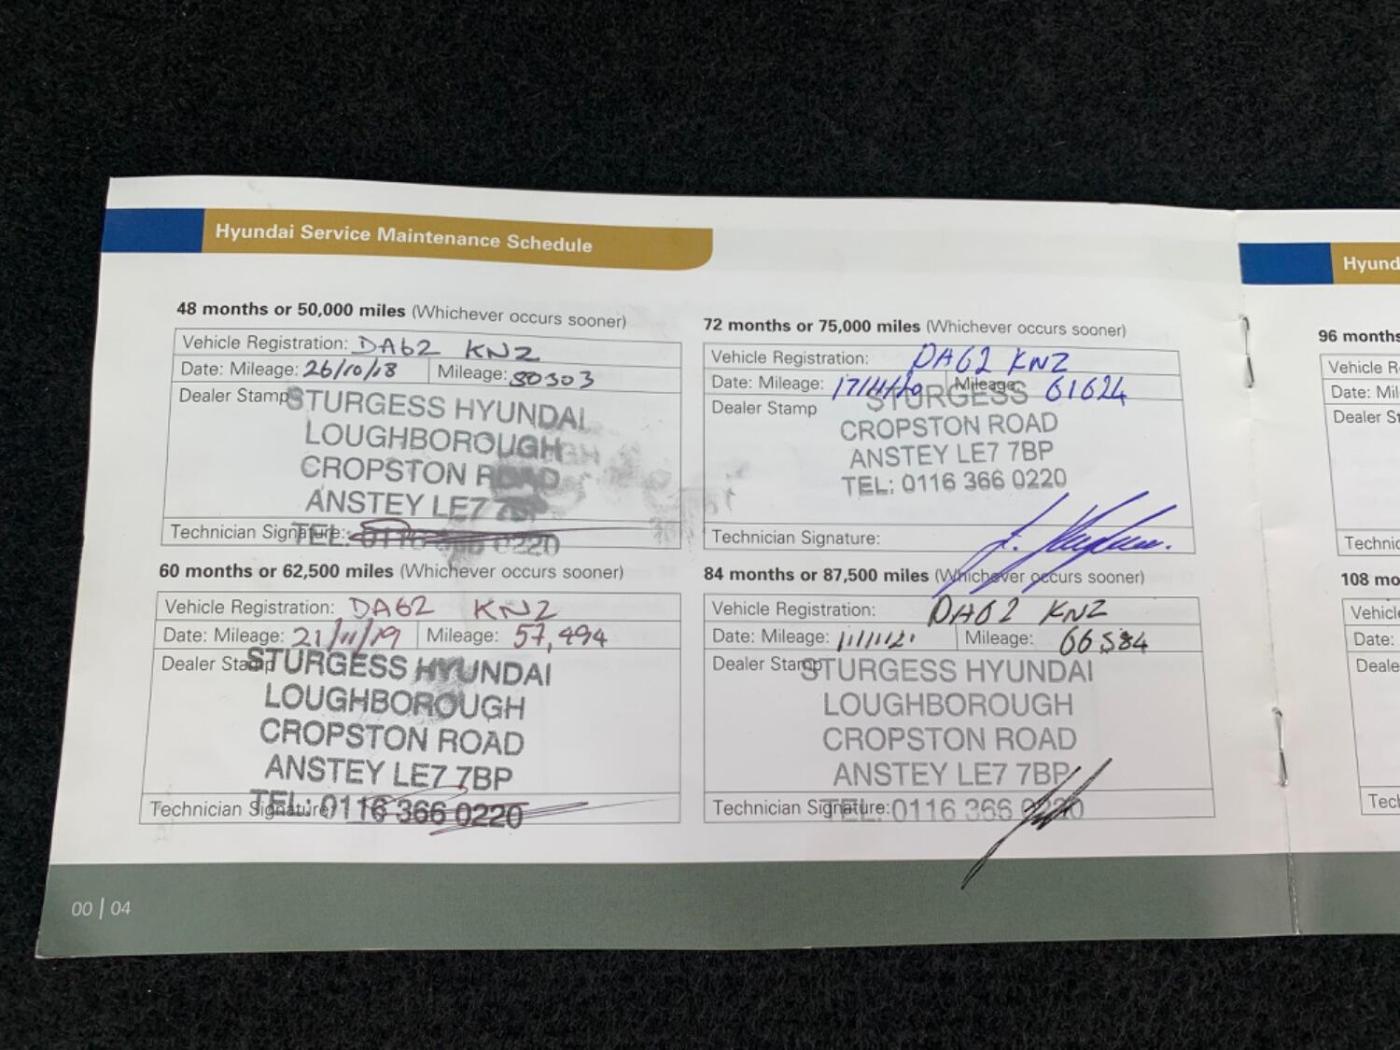 Hyundai Service Maintenance Schedule
48 months or 50,000 miles (Whichever occurs sooner)
Vehicle Registration: DA62 KNZ
Date: Mileage: 26/10/18 Mileage: 50303
Dealer Stamp
STURGESS HYUNDAI
LOUGHBOROUGH
CROPSTON ROAD
ANSTEY LE7
Technician Signature:
TEL: 0220
60 months or 62,500 miles (Whichever occurs sooner)
Vehicle Registration: DA62 KNZ
Date: Mileage: 21/11/19 Mileage: 57,494
Dealer Stamp
STURGESS HYUNDAI
LOUGHBOROUGH
CROPSTON ROAD
ANSTEY LE7 7BP
Technician Signature:
TEL: 0116 366 0220
72 months or 75,000 miles (Whichever occurs sooner)
Vehicle Registration: DA62 KNZ
Date: Mileage: 17/11/20 Mileage: 61624
Dealer Stamp
STURGESS
CROPSTON ROAD
ANSTEY LE7 7BP
TEL: 0116 366 0220
Technician Signature:
84 months or 87,500 miles (Whichever occurs sooner)
Vehicle Registration: DA62 KNZ
Date: Mileage: 11/11/21 Mileage: 66584
Dealer Stamp
STURGESS HYUNDAI
LOUGHBOROUGH
CROPSTON ROAD
ANSTEY LE7 7BP
Technician Signature:
TEL: 0116 366 0220
00 | 04
Hyund
96 months
Vehicle R
Date: Mil
Dealer St
Technic
108 mo
Vehicle
Date:
Deale
Tec